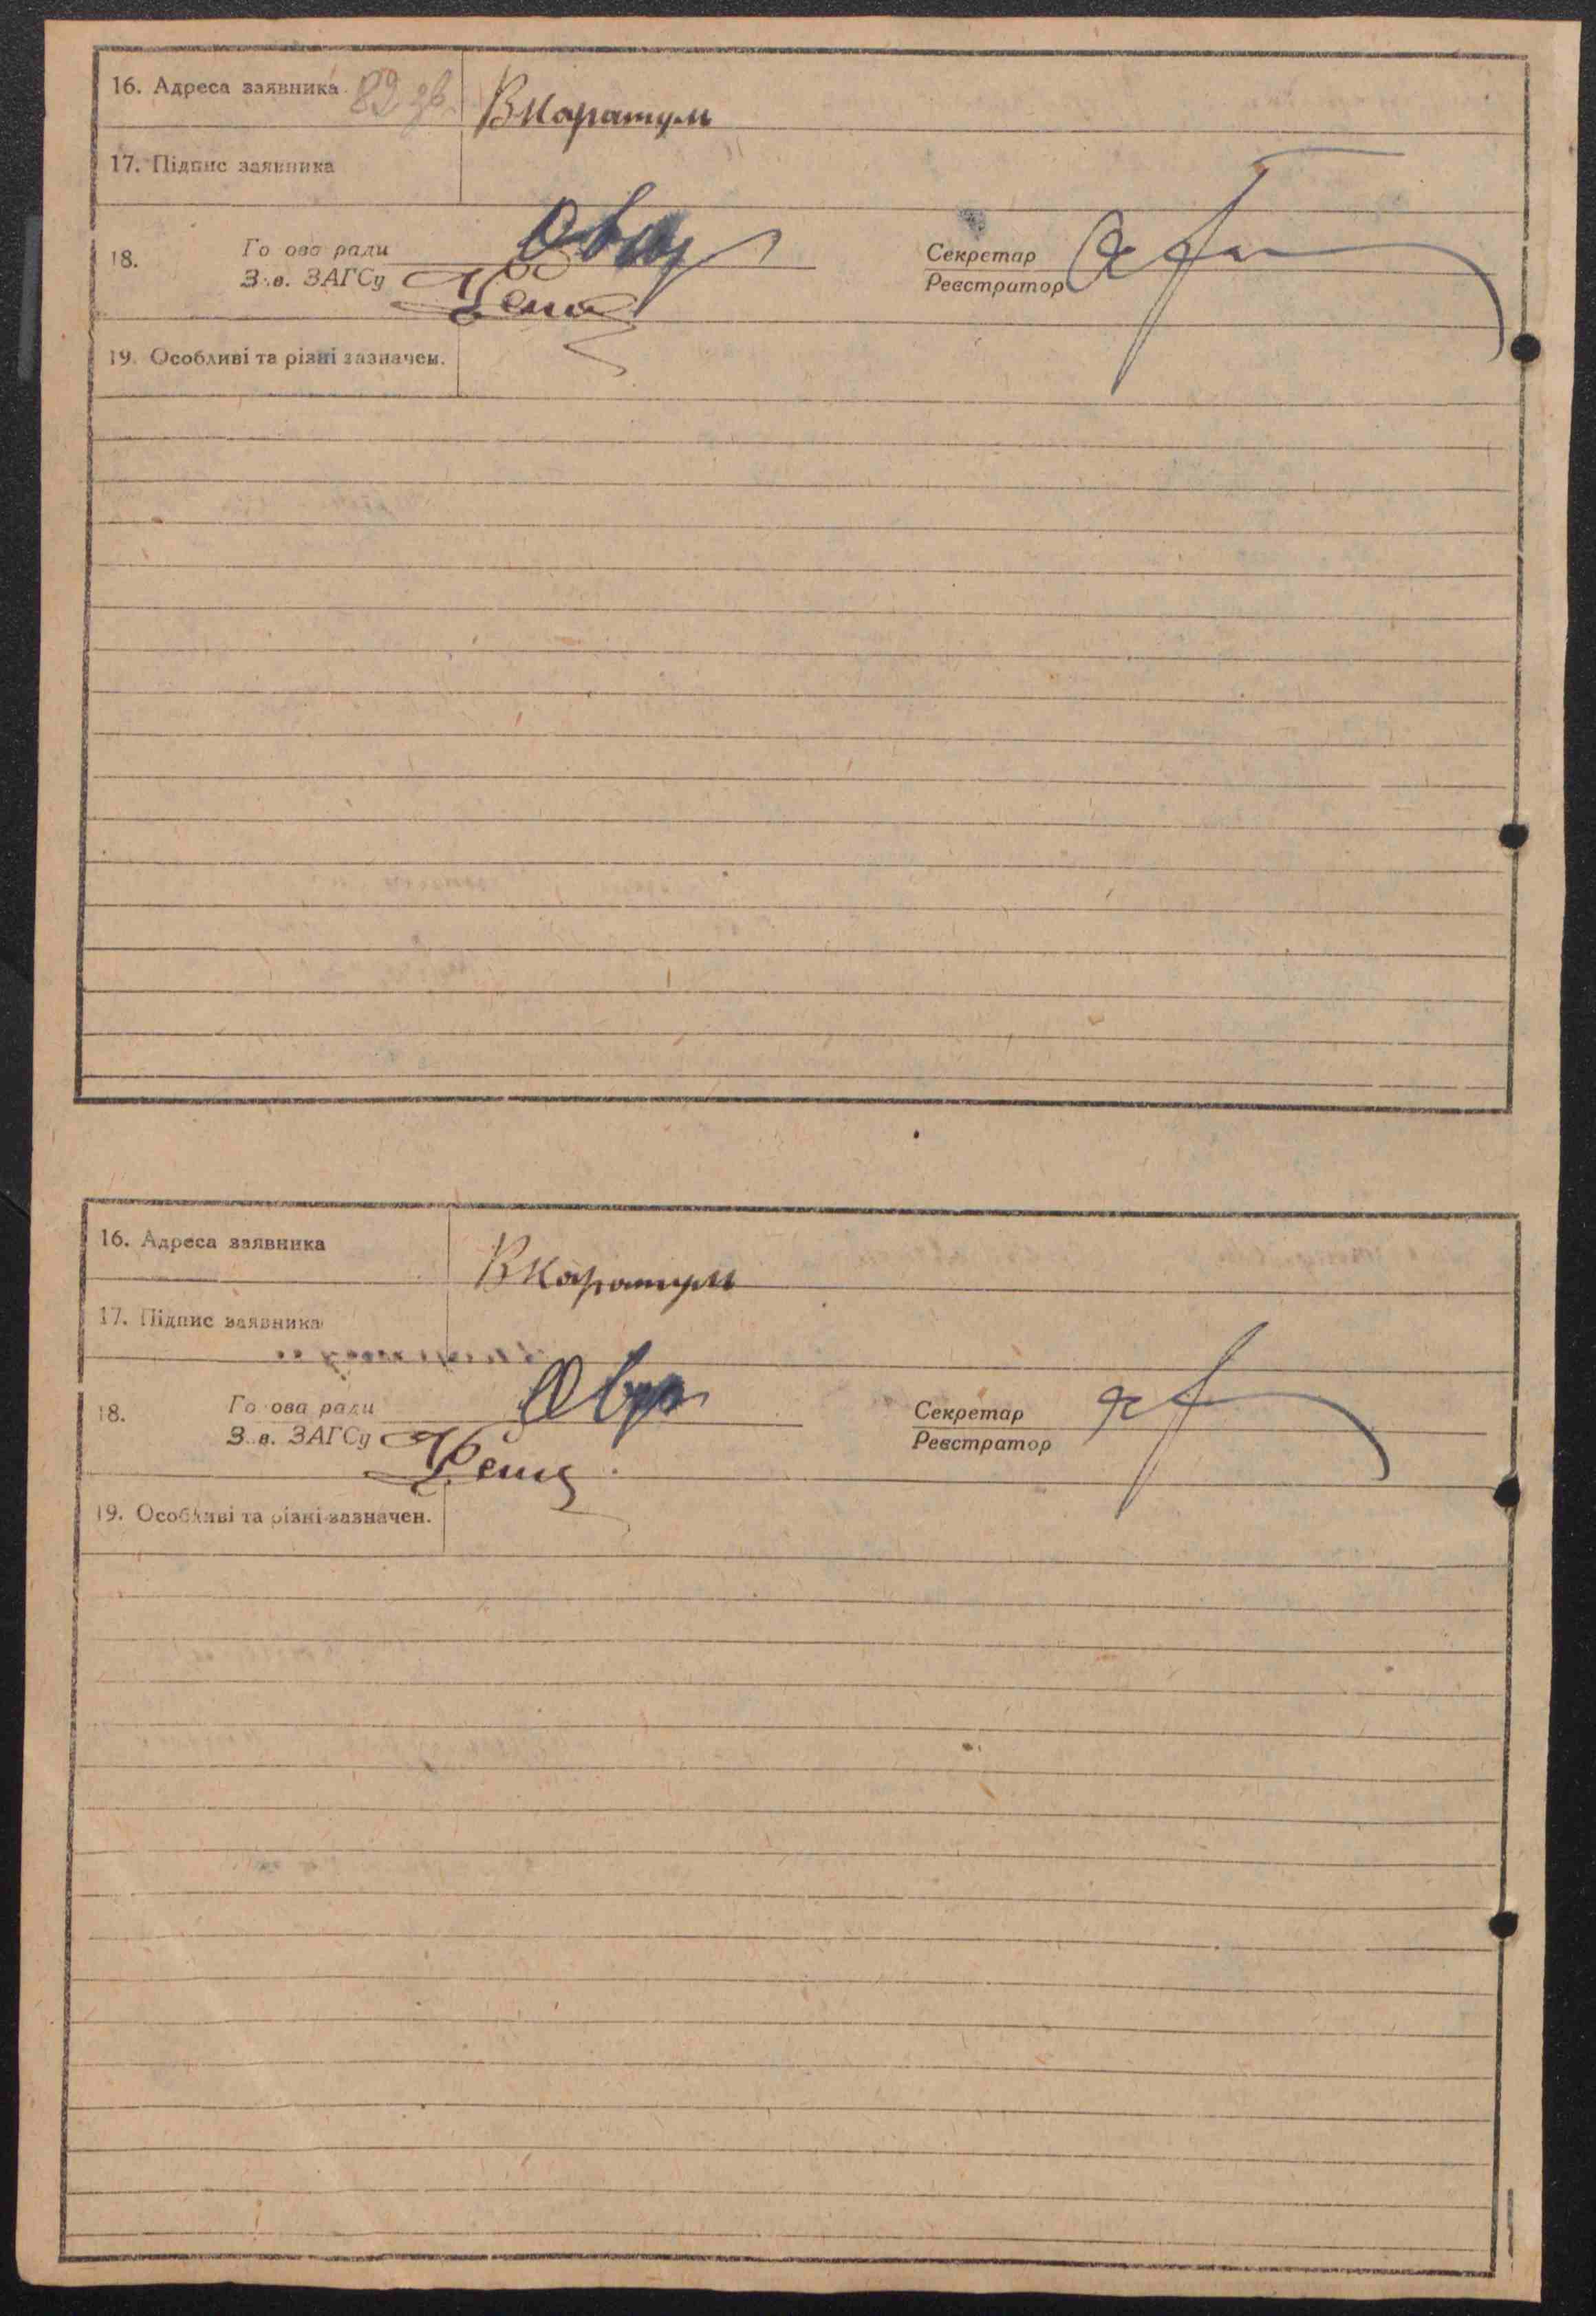 16. Адреса заявника 82 зв. В Каратул
17. Підпис заявника
18. Го ова ради Секретар
З.в. ЗАГСу Реєстратор
19. Особливі та різні зазначен.
16. Адреса заявника В Каратул
17. Підпис заявника
18. Го ова ради Секретар
З.в. ЗАГСу Реєстратор
19. Особливі та різні зазначен.